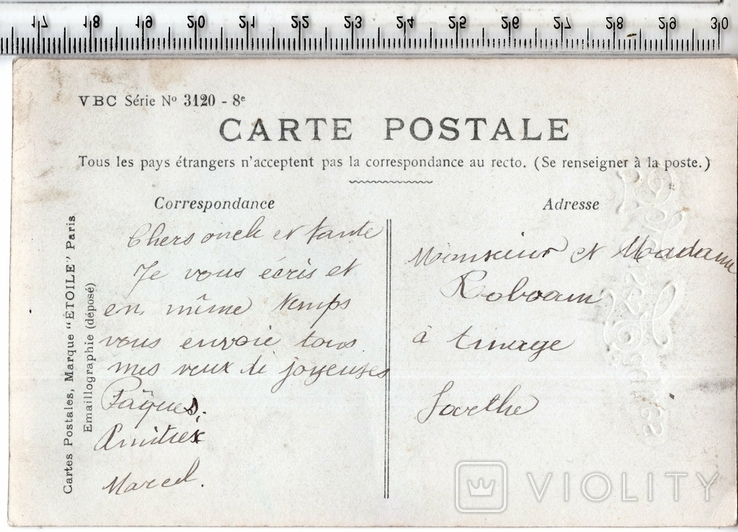 17 18 19 20 21 22 23 24 25 26 27 28 29 30
VBC Série Nº 3120 - 8e
CARTE POSTALE
Tous les pays étrangers n'acceptent pas la correspondance au recto. (Se renseigner à la poste.)
Correspondance
Chers oncle et tante
Je vous écris et
en même temps
vous envoie tous
mes veux de joyeuses
Pâques.
Amitiés
Marcel.
Adresse
Monsieur et Madame
Roboam
à
Sarthe
Cartes Postales, Marque "ÉTOILE" Paris
Emaillographie (déposé)
VIOLITY